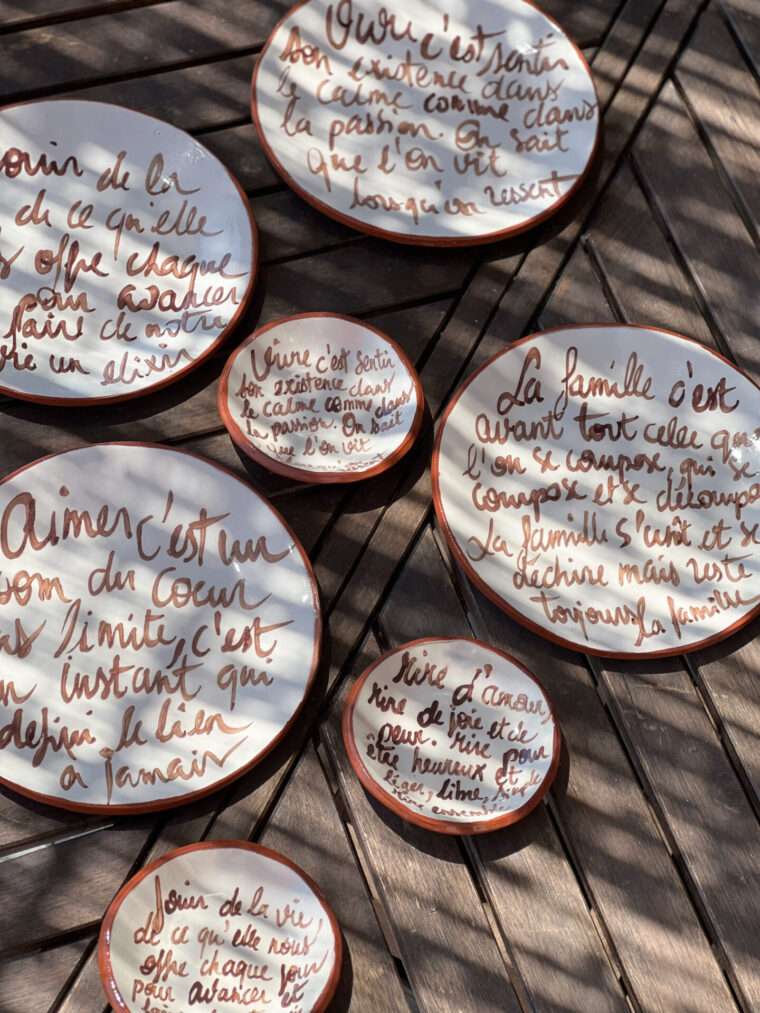 Vivre c'est sentir
son existence dans
le calme comme dans
la passion. On sait
que l'on vit
lorsqu'on ressent
ouir de la
de ce qu'elle
s offre chaque
pour avancer
faire de notre
vie un elixir
Vivre c'est sentir
son existence dans
le calme comme dans
la passion. On sait
que l'on vit
La famille c'est
avant tout celle que
l'on se compose, qui se
compose et se décompo
La famille s'unit et se
déchire mais reste
toujours la famille
Aimer c'est un
om du coeur
ns limite, c'est
n instant qui
defini le lien
a jamais
Rire d'amour,
rire de joie et de
peur. Rire pour
être heureux et
léger, libre, simple
rire ensemble
Jouir de la vie
de ce qu'elle nous
offre chaque jour
pour avancer et